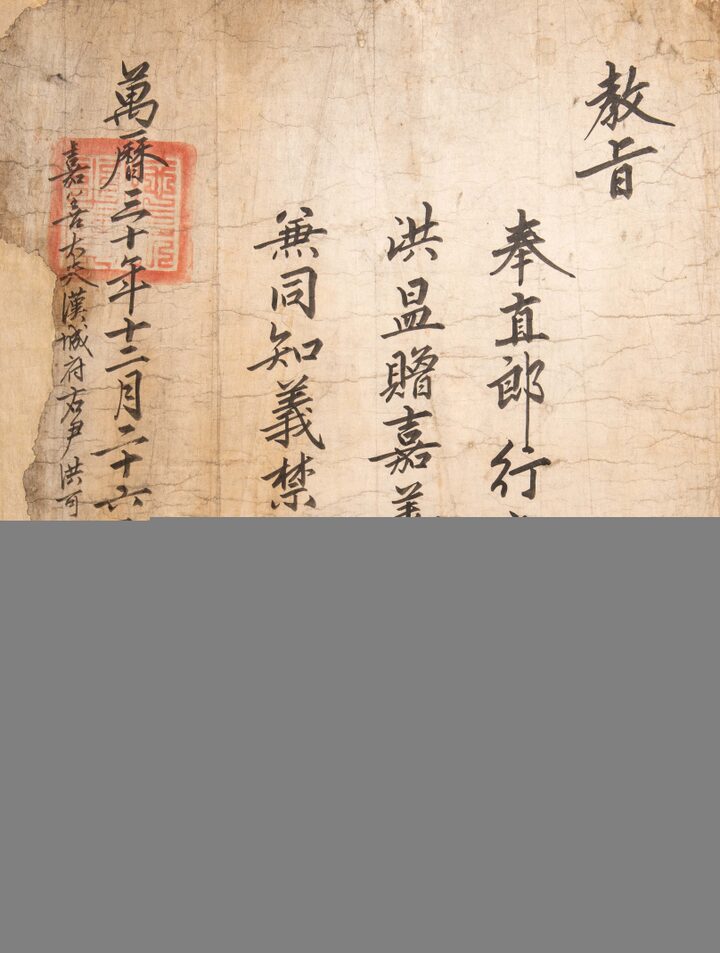 教旨
奉直郎行
洪昷贈嘉善
兼同知義禁
萬曆三十年十二月二十六
嘉善大夫漢城府右尹洪可